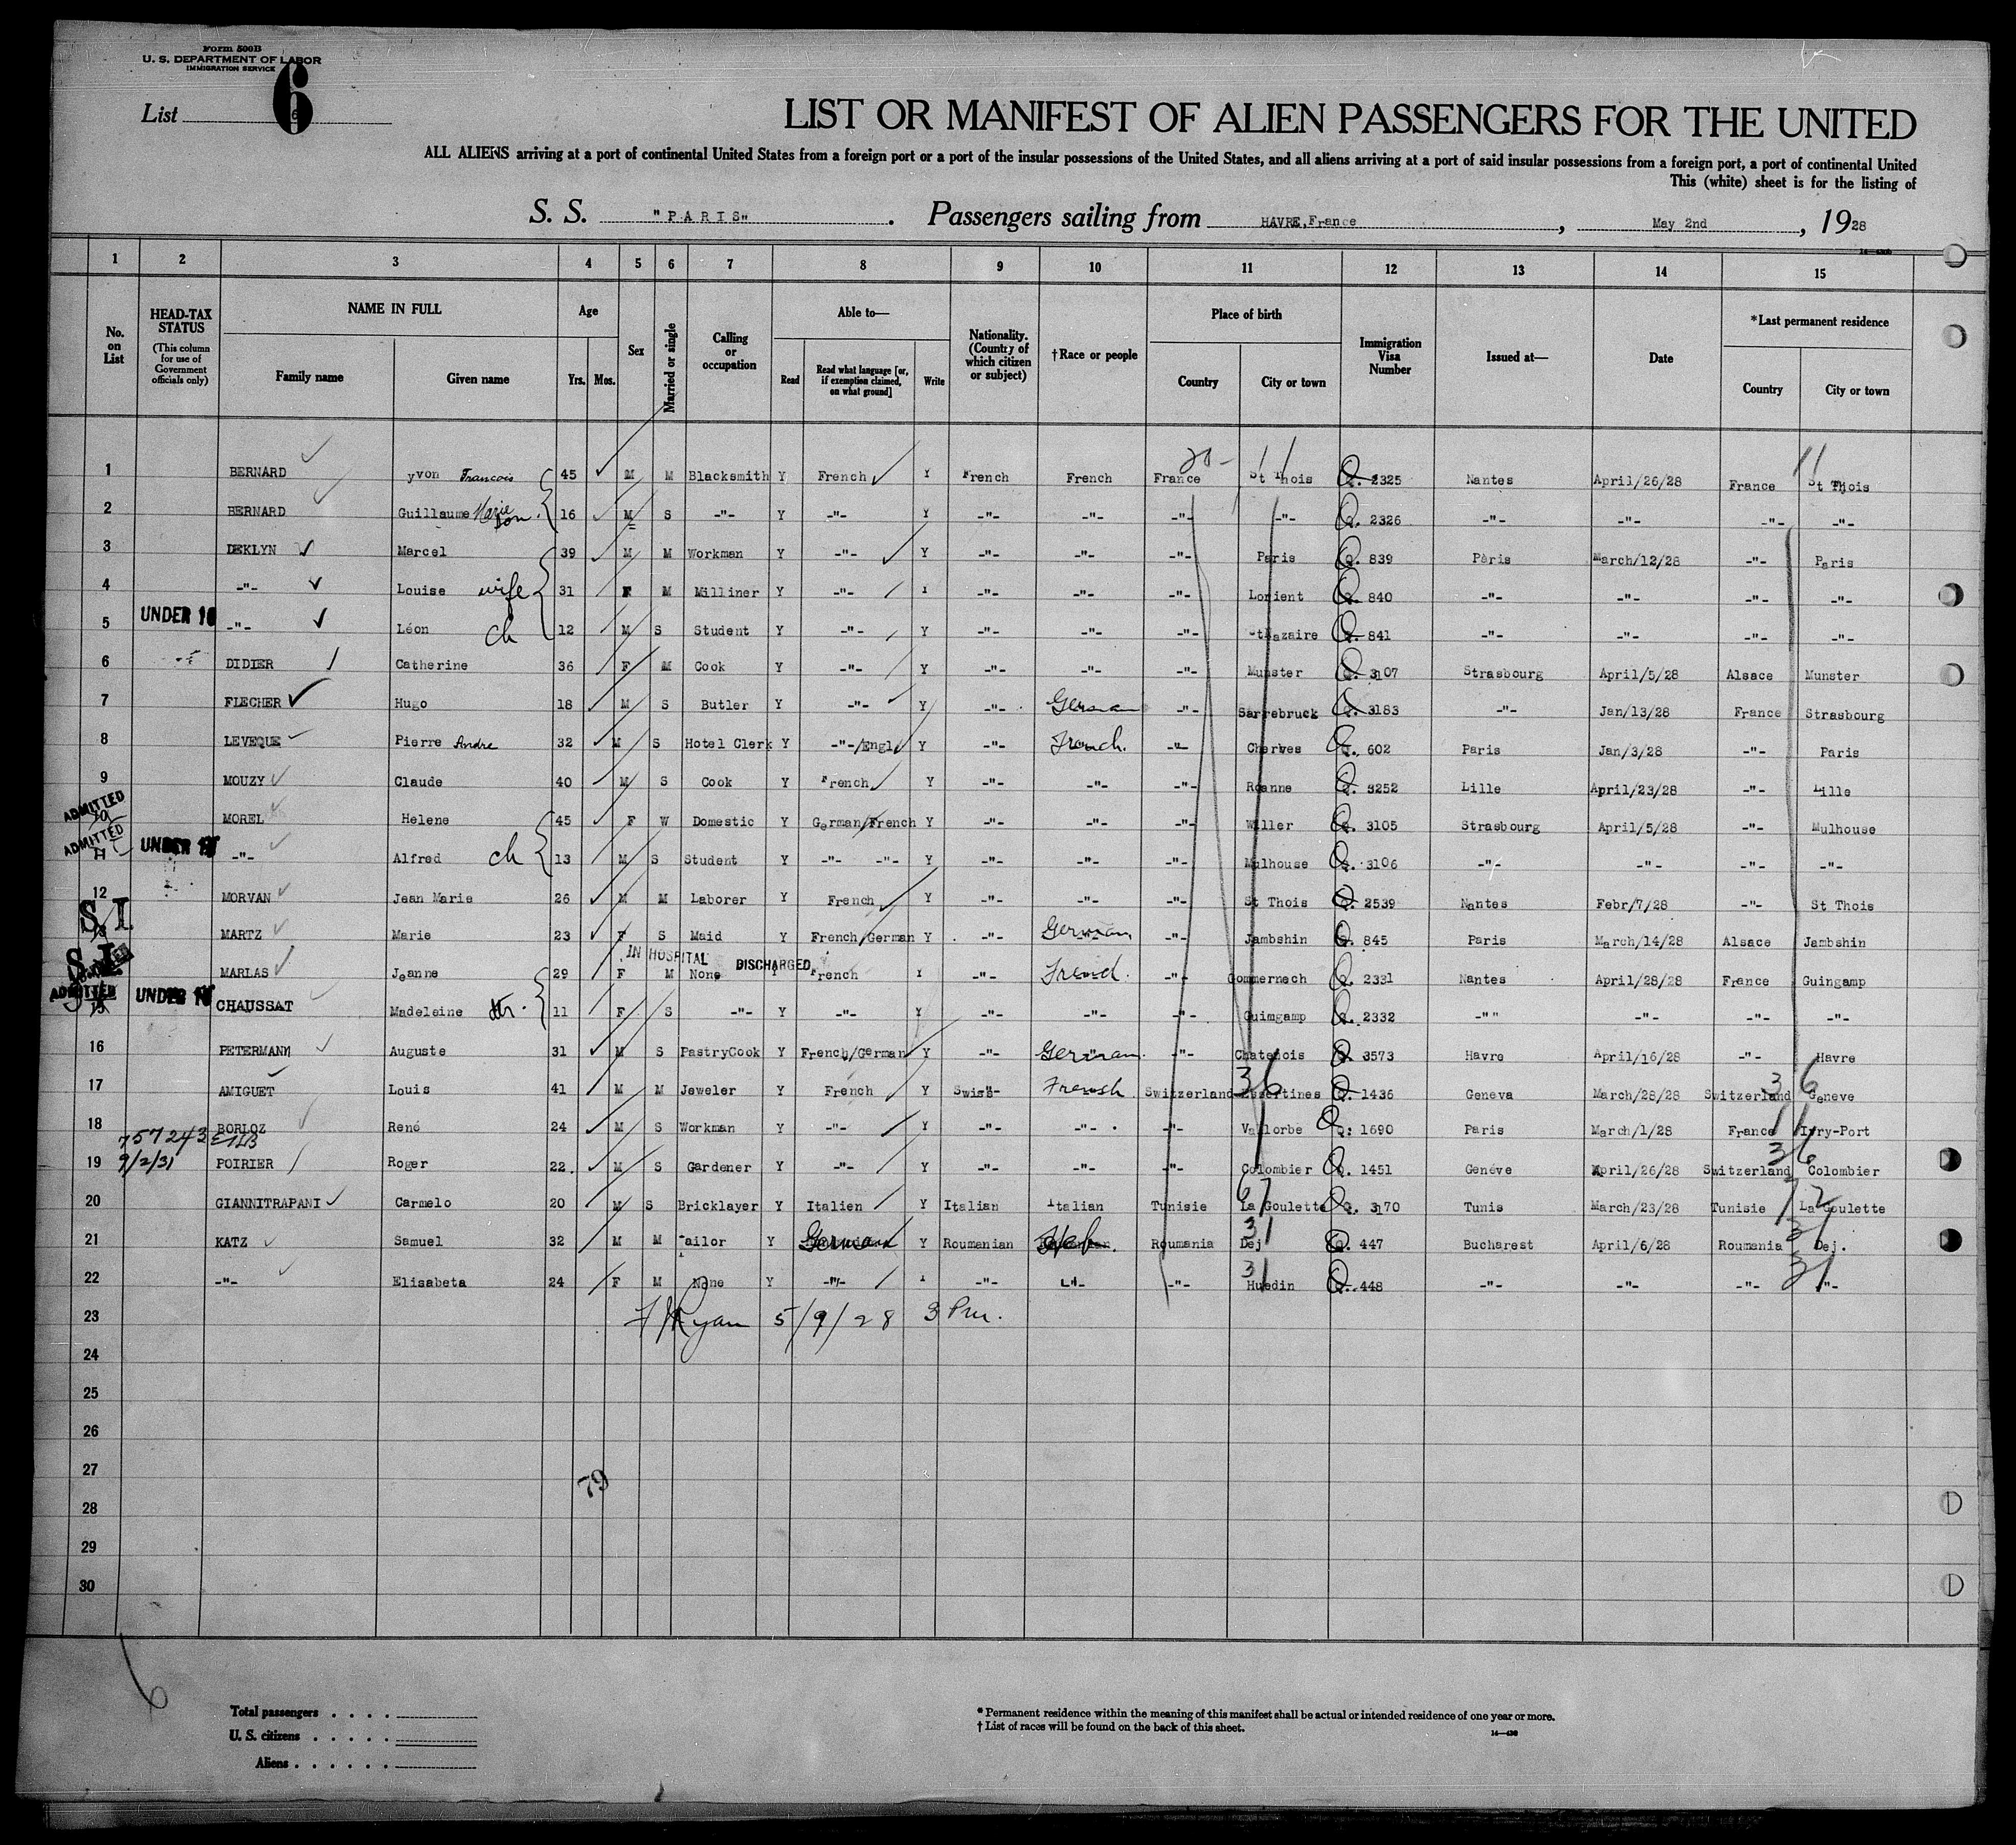 Form 500B
U. S. DEPARTMENT OF LABOR
IMMIGRATION SERVICE
List 6
LIST OR MANIFEST OF ALIEN PASSENGERS FOR THE UNITED
ALL ALIENS arriving at a port of continental United States from a foreign port or a port of the insular possessions of the United States, and all aliens arriving at a port of said insular possessions from a foreign port, a port of continental United
This (white) sheet is for the listing of
S. S. "PARIS". Passengers sailing from HAVRE, France, May 2nd, 1928
1 2 3 4 5 6 7 8 9 10 11 12 13 14 15
No. on List
HEAD-TAX STATUS (This column for use of Government officials only)
NAME IN FULL
Family name Given name
Age
Yrs. Mos.
Sex
Married or single
Calling or occupation
Able to—
Read Read what language [or, if exemption claimed, on what ground] Write
Nationality. (Country of which citizen or subject)
†Race or people
Place of birth
Country City or town
Immigration Visa Number
Issued at—
Date
*Last permanent residence
Country City or town
1 BERNARD yvon Francois 45 M M Blacksmith Y French Y French French France St Thois Q. 2325 Nantes April/26/28 France St Thois
2 BERNARD Guillaume Marie son. 16 M S -"- Y -"- Y -"- -"- -"- -"- Q. 2326 -"- -"- -"- -"-
3 DEKLYN Marcel 39 M M Workman Y -"- Y -"- -"- -"- Paris Q. 839 Paris March/12/28 -"- Paris
4 -"- Louise wife 31 F M Milliner Y -"- Y -"- -"- -"- Lorient Q. 840 -"- -"- -"- -"-
5 UNDER 16 -"- Léon ch 12 M S Student Y -"- Y -"- -"- -"- St Nazaire Q. 841 -"- -"- -"- -"-
6 DIDIER Catherine 36 F M Cook Y -"- Y -"- -"- -"- Munster Q. 3107 Strasbourg April/5/28 Alsace Munster
7 FLECHER Hugo 18 M S Butler Y -"- Y -"- German -"- Sarrebruck Q. 3183 -"- Jan/13/28 France Strasbourg
8 LEVEQUE Pierre Andre 32 M S Hotel Clerk Y -"-/Engl Y -"- French. -"- Cherves Q. 602 Paris Jan/3/28 -"- Paris
9 MOUZY Claude 40 M S Cook Y French Y -"- -"- -"- Roanne Q. 3252 Lille April/23/28 -"- Lille
ADMITTED 10 MOREL Helene 45 F W Domestic Y German/French Y -"- -"- -"- Willer Q. 3105 Strasbourg April/5/28 -"- Mulhouse
ADMITTED 11 UNDER 16 -"- Alfred ch 13 M S Student Y -"- -"- Y -"- -"- -"- Mulhouse Q. 3106 -"- -"- -"- -"-
12 MORVAN Jean Marie 26 M M Laborer Y French Y -"- -"- -"- St Thois Q. 2539 Nantes Febr/7/28 -"- St Thois
S.I. MARTZ Marie 23 F S Maid Y French/German Y -"- German -"- Jambshin Q. 845 Paris March/14/28 Alsace Jambshin
IN HOSPITAL DISCHARGED
S.I. MARLAS Jeanne 29 F M None French Y -"- French. -"- Gommernech Q. 2331 Nantes April/28/28 France Guingamp
ADMITTED 15 UNDER 16 CHAUSSAT Madeleine 11 F S -"- Y -"- Y -"- -"- -"- Guimgamp Q. 2332 -"" -"- -"- -"-
16 PETERMANN Auguste 31 M S PastryCook Y French/German Y -"- German -"- Chatenois Q. 3573 Havre April/16/28 -"- Havre
17 AMIGUET Louis 41 M M Jeweler Y French Y Swiss French Switzerland Essertines Q. 1436 Geneva March/28/28 Switzerland Geneve
18 BORLOZ René 24 M S Workman Y -"- Y -"- -"- -"- Vallorbe Q. 1690 Paris March/1/28 France Ivry-Port
757243
19 9/2/31 POIRIER Roger 22 M S Gardener Y -"- Y -"- -"- -"- Colombier Q. 1451 Genéve April/26/28 Switzerland Colombier
20 GIANNITRAPANI Carmelo 20 M S Bricklayer Y Italien Y Italian Italian Tunisie La Goulette Q. 3170 Tunis March/23/28 Tunisie La Goulette
21 KATZ Samuel 32 M M Tailor Y German Y Roumanian Heb. Roumania Dej Q. 447 Bucharest April/6/28 Roumania Dej.
22 -"- Elisabeta 24 F M None Y -"- -"- -"- -"- Huedin Q. 448 -"- -"- -"- -"-
23 Ryan 5/9/28 3 Pm.
24
25
26
27
79
28
29
30
6
Total passengers
U. S. citizens
Aliens
* Permanent residence within the meaning of this manifest shall be actual or intended residence of one year or more.
† List of races will be found on the back of this sheet.